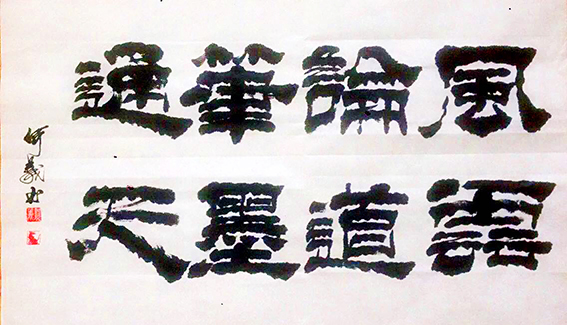 風雲
論道
筆墨
通天
何義